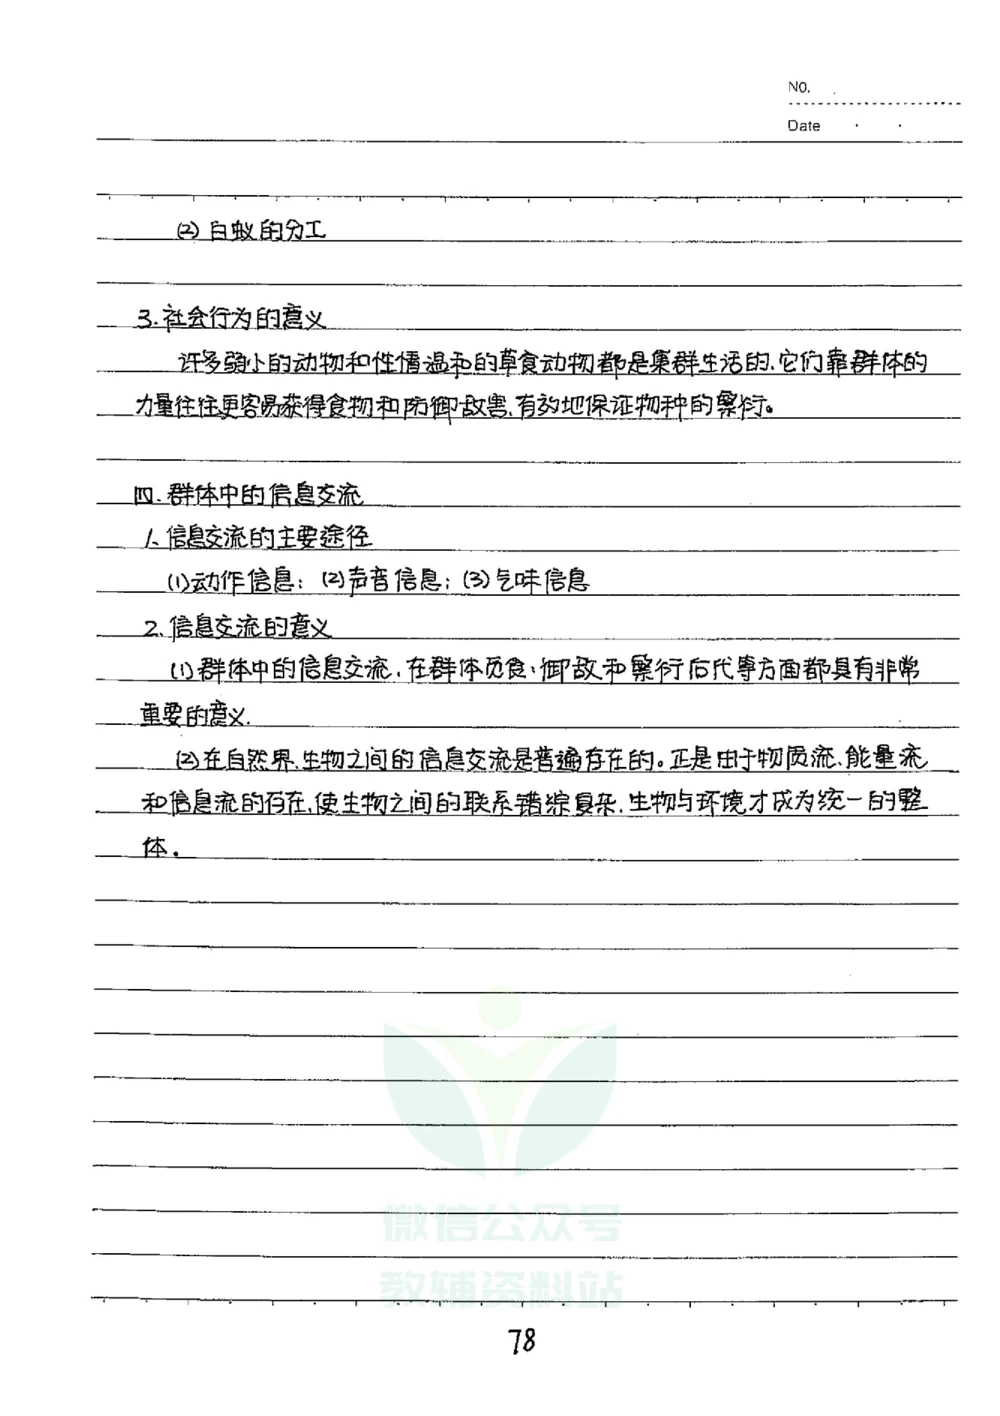 NO.
Date
(2) 白蚁的分工
3. 社会行为的意义
许多弱小的动物和性情温和的草食动物都是集群生活的,它们靠群体的
力量往往更容易获得食物和防御敌害,有效地保证物种的繁衍。
四、群体中的信息交流
1、信息交流的主要途径
(1)动作信息; (2)声音信息; (3)气味信息
2、信息交流的意义
(1)群体中的信息交流,在群体觅食、御敌和繁衍后代等方面都具有非常
重要的意义.
(2)在自然界,生物之间的信息交流是普遍存在的。正是由于物质流、能量流
和信息流的存在,使生物之间的联系错综复杂,生物与环境才成为统一的整
体.
微信公众号
教辅资料站
78